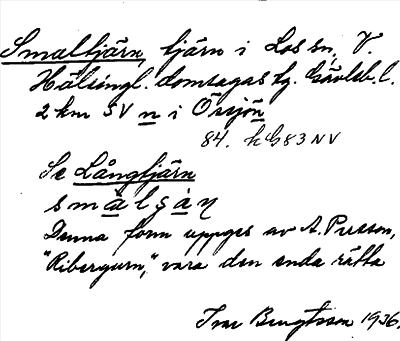 Smaltjärn, tjärn i Los sn, V.
Hälsingl. domsagas tg. Gävleb. l.
2 km SV n i Örsjön
84. hG83NV
Se Långtjärn
smàlşàɳ
Denna form uppges av A. Persson,
"Ribergurn," vara den enda rätta
Ivar Bengtsson 1936.